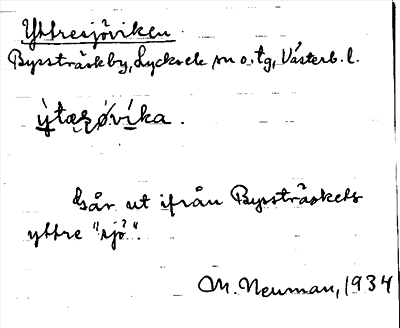 Yttresjöviken.
Bysträsk by, Lycksele sn o. tg, Västerb. l.
Går ut ifrån Bysträskets
yttre "sjö".
M. Neuman, 1934